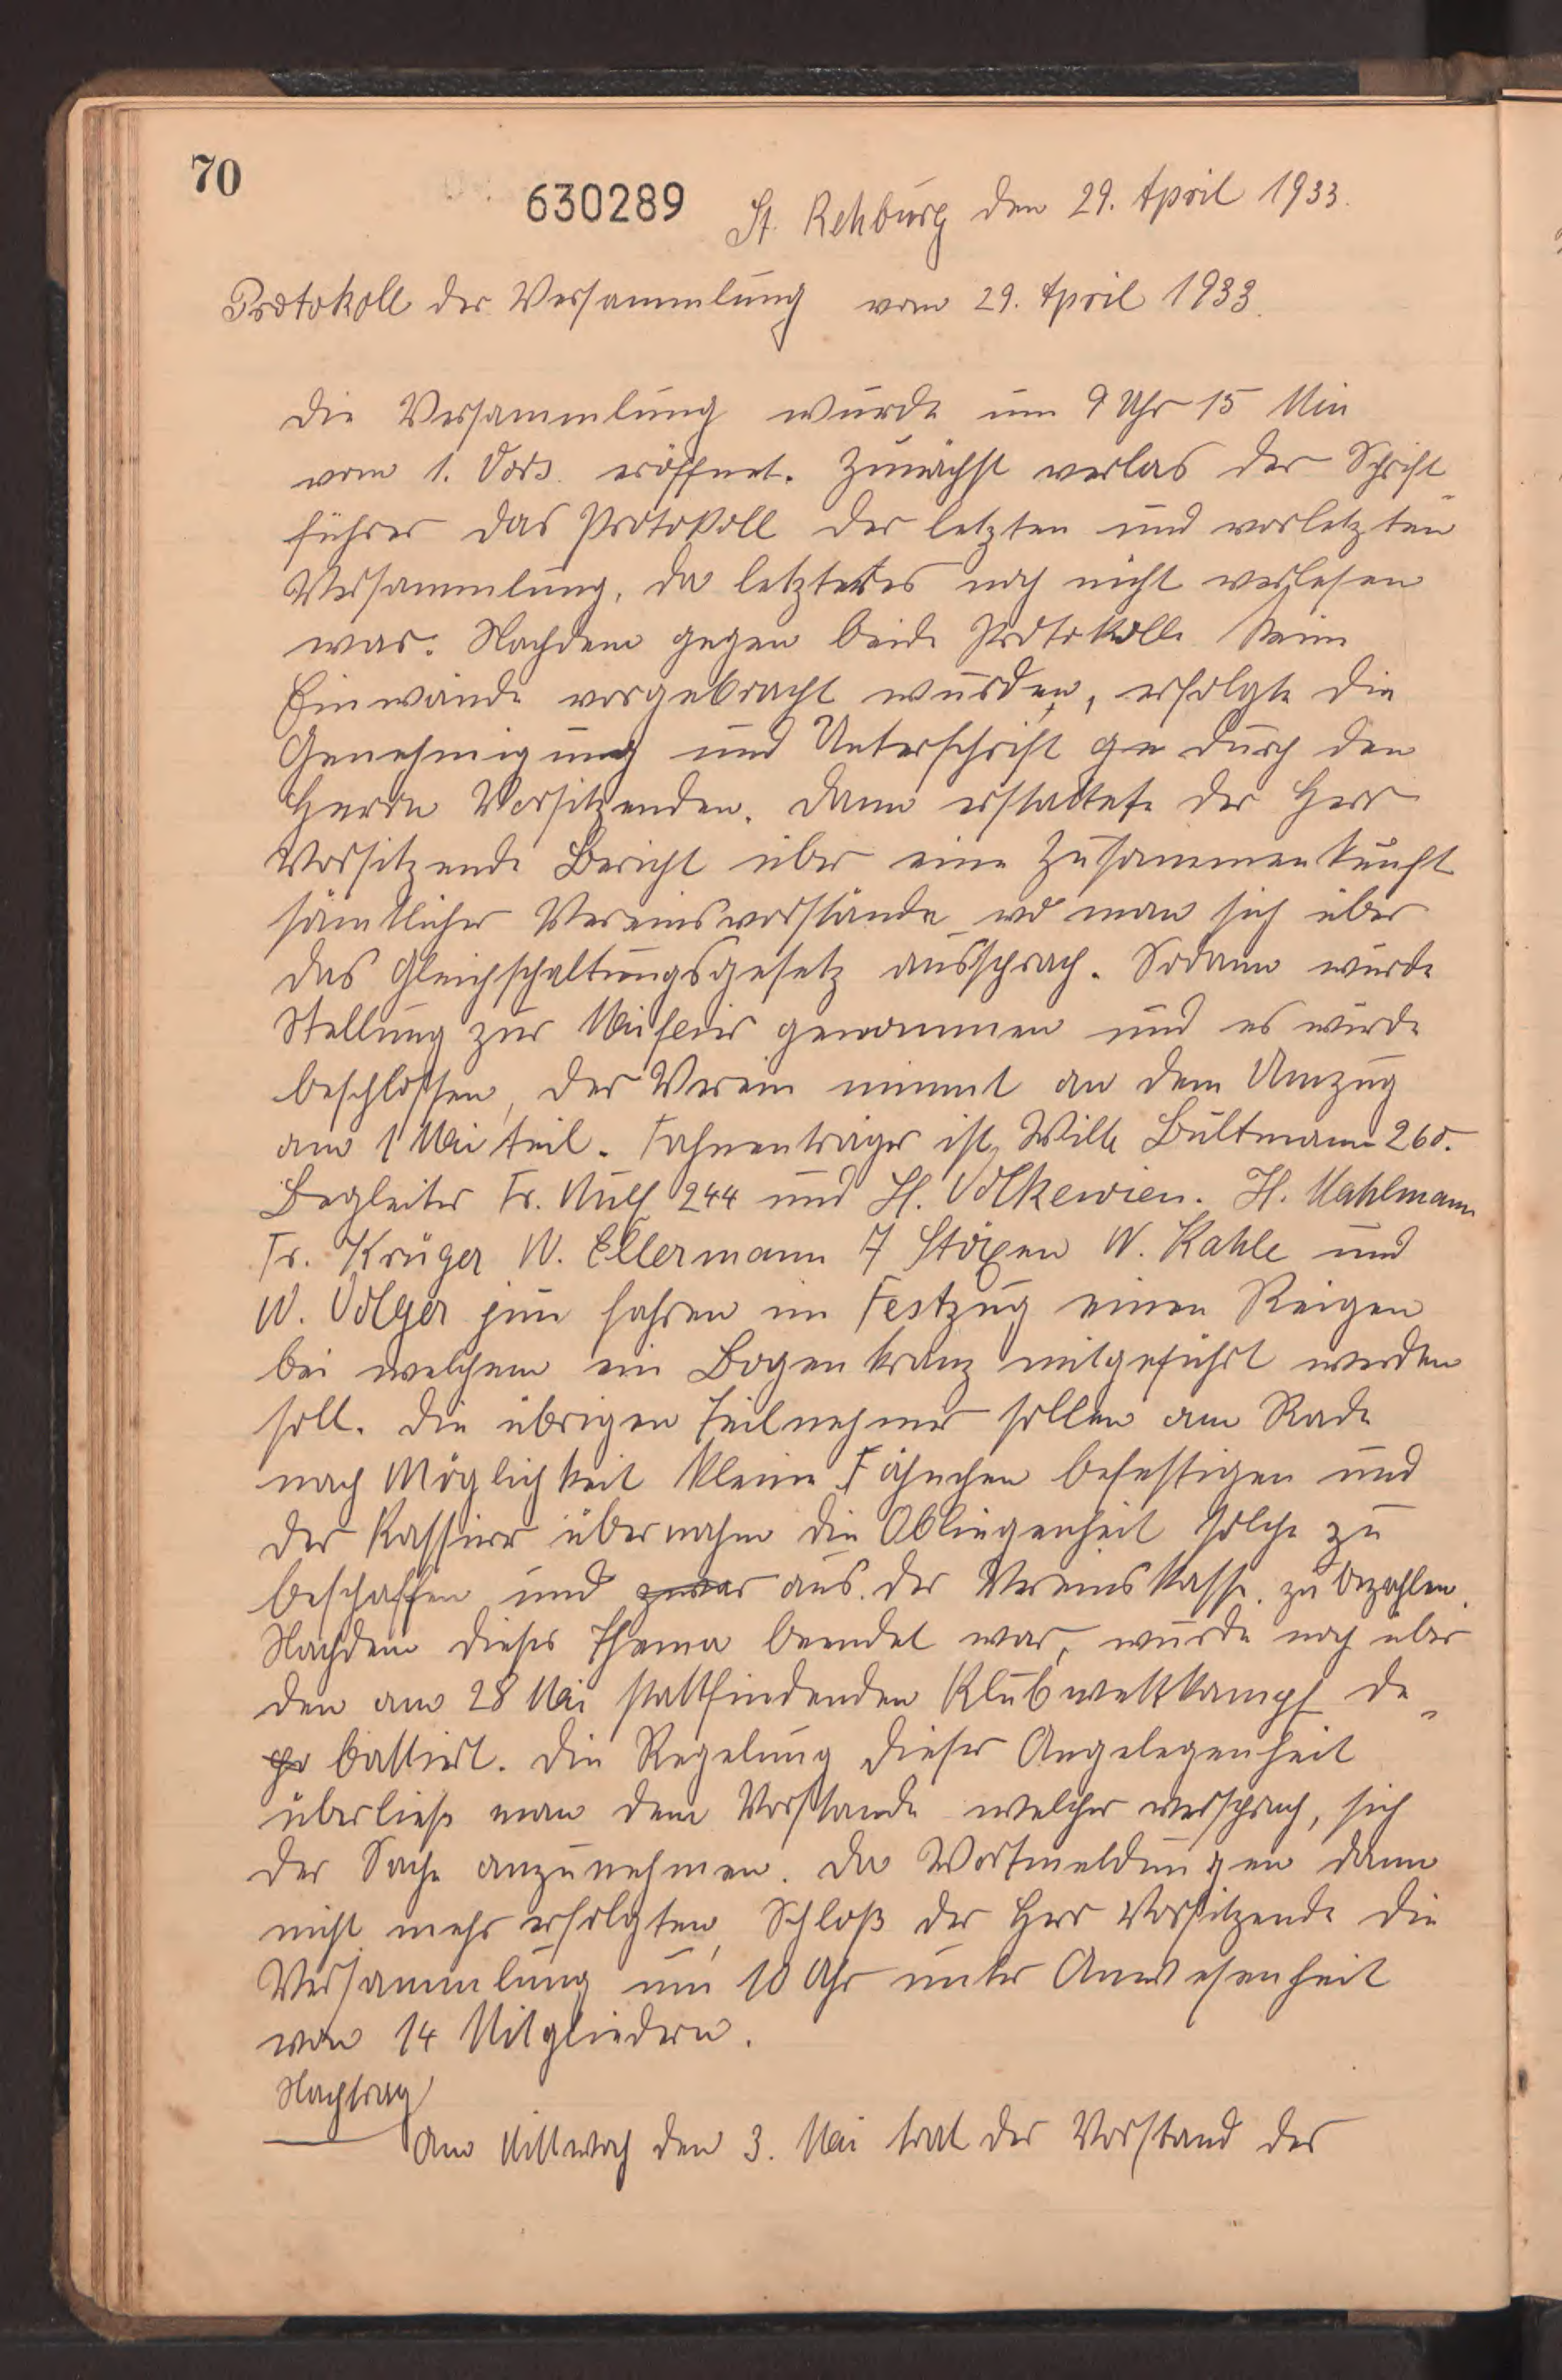 70
630289
St. Rehburg den 29. April 1933.
Protokoll der Versammlung vom 29. April 1933.
Die Versammlung wurde um 9 Uhr 15 Min
vom 1. Vors. eröffnet. Zunächst verlas der Schrift-
führer das Protokoll der letzten und vorletzten
Versammlung, da letzteres noch nicht verlesen
war. Nachdem gegen beide Protokolle keine
Einwände vorgebracht wurden, erfolgte die
Genehmigung und Unterschrift ge durch den
Herrn Vorsitzenden. Dann erstattete der Herr
Vorsitzende Bericht über eine Zusammenkunft
sämtlicher Vereinsvorstände wo man sich über
das Gleichschaltungsgesetz aussprach. Sodann wurde
Stellung zur Maifeier genommen und es wurde
beschlossen, der Verein nimmt an dem Umzug
am 1 Mai teil. Fahnenträger ist, Wilh Bültmann 260.
Begleiter Fr. 244 und H. Volkewien. H. Mahlmann
Fr. Krüger W. Ellermann F Stöxen W. Kahle und
W. Volger jun fahren im Festzug einen Reigen
bei welchem ein Bogenkranz mitgeführt werden
soll. Die übrigen Teilnehmer sollen am Rade
nach Möglichkeit kleine Fähnchen befestigen und
der Kassierer übernahm die Obliegenheit solche zu
beschaffen und zwar aus der Vereinskasse zu bezahlen.
Nachdem dieses Thema beendet war, wurde noch über
den am 28 Mai stattfindenden Klubwettkampf de-
battiert. Die Regelung dieser Angelegenheit
überließ man dem Vorstande welcher versprach, sich
der Sache anzunehmen. Da Wortmeldungen dann
nicht mehr erfolgten, Schloß der Herr Vorsitzende die
Versammlung um 10 Uhr unter Anwesenheit
von 14 Mitgliedern.
Nachtrag
Am Mittwoch den 3. Mai trat der Vorstand des